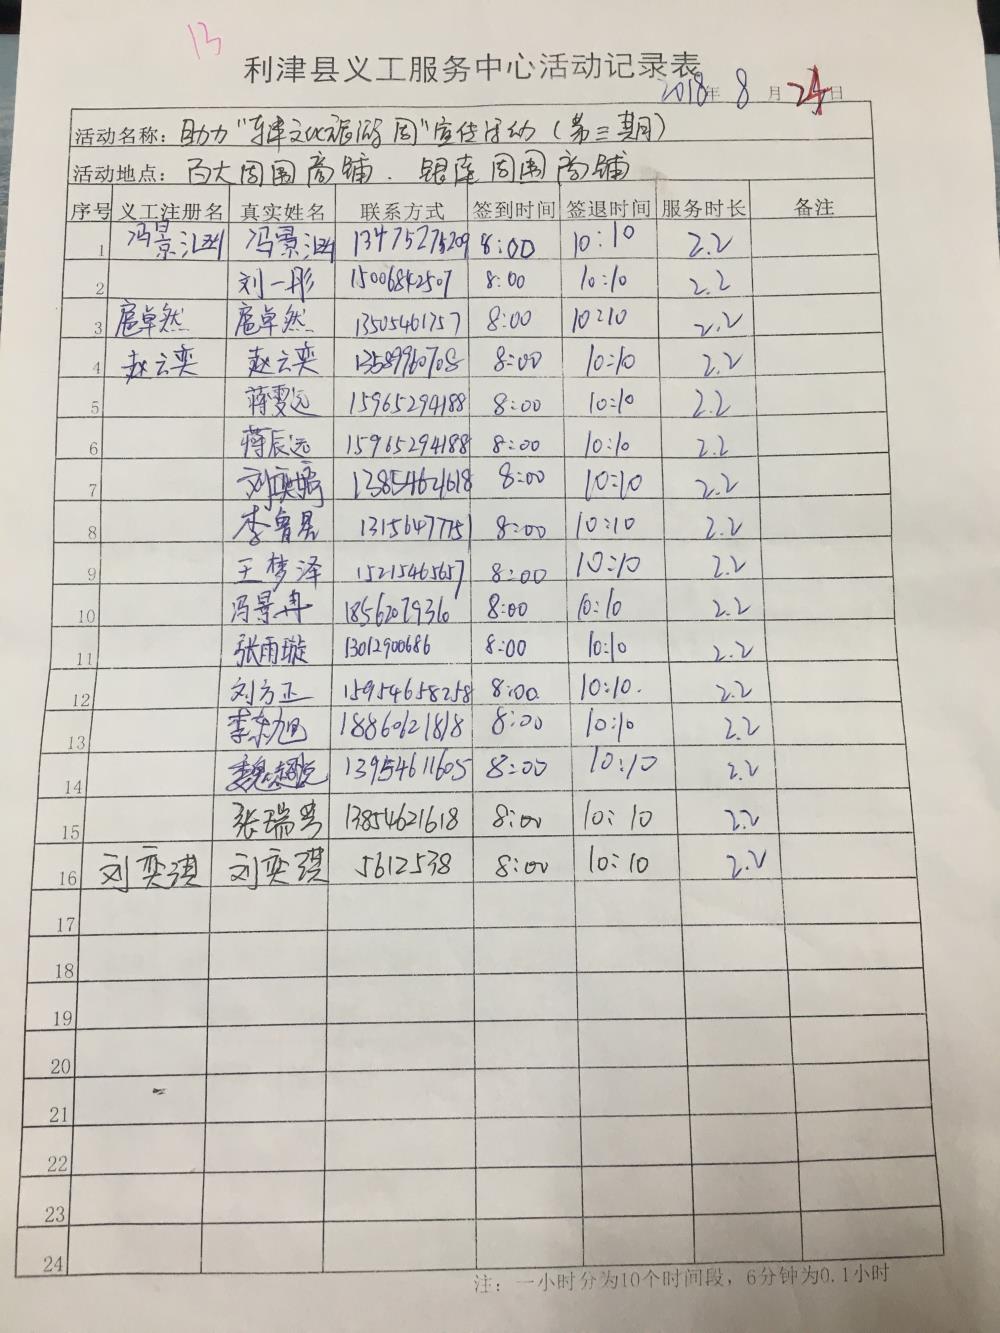 13
利津县义工服务中心活动记录表
2018年 8 月 24 日
活动名称: 助力"东津文化旅游周"宣传活动(第三期)
活动地点: 百大周围商铺、银座周围商铺
序号 义工注册名 真实姓名 联系方式 签到时间 签退时间 服务时长 备注
1 冯景 冯景 13475275209 8:00 10:10 2.2
2 刘一彤 15006842507 8:00 10:10 2.2
3 扈卓然 扈卓然 13505461757 8:00 10:10 2.2
4 赵云奕 赵云奕 13589960708 8:00 10:10 2.2
5 蒋雯远 15965294188 8:00 10:10 2.2
6 蒋辰远 15965294188 8:00 10:10 2.2
7 刘奕 13854621618 8:00 10:10 2.2
8 李鲁 13156477751 8:00 10:10 2.2
9 王梦泽 15215465657 8:00 10:10 2.2
10 冯景冉 18562079360 8:00 10:10 2.2
11 张雨璇 13012900686 8:00 10:10 2.2
12 刘方正 15954658258 8:00 10:10. 2.2
13 李东旭 18860621818 8:00 10:10 2.2
14 魏 13954611605 8:00 10:10 2.2
15 张瑞 13854621618 8:00 10:10 2.2
16 刘奕琪 刘奕琪 5612538 8:00 10:10 2.2
17
18
19
20
21
22
23
24
注: 一小时分为10个时间段，6分钟为0.1小时